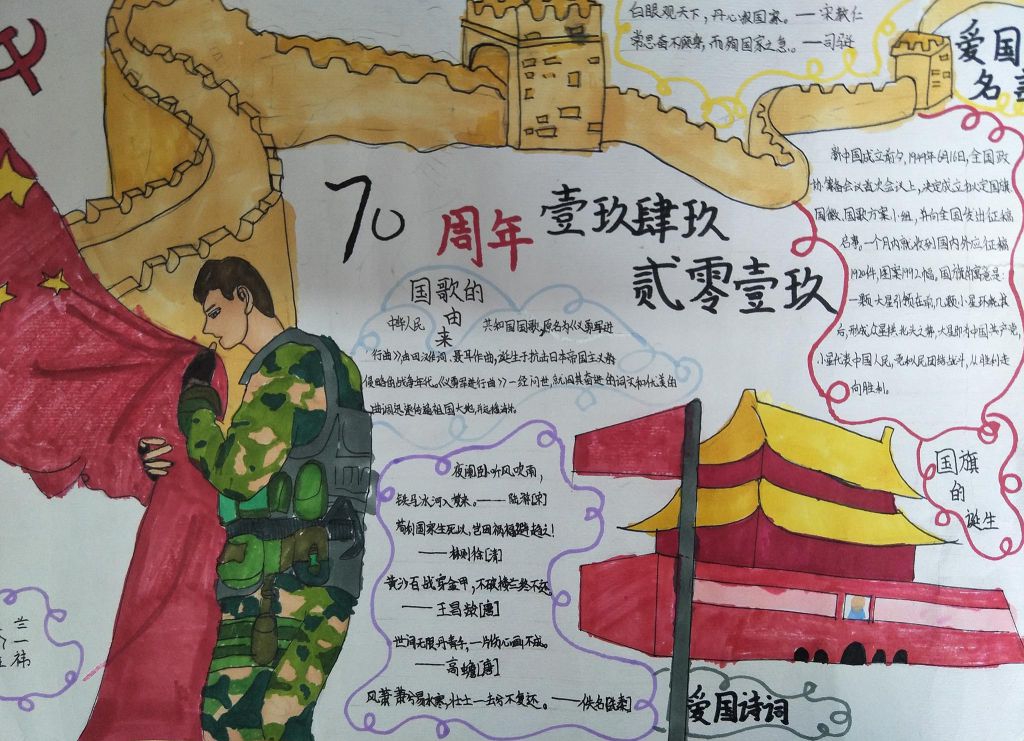 白眼观天下，丹心报国家。——宋教仁
常思奋不顾身，而殉国家之急。——司马迁
爱国
名言
70周年
壹玖肆玖
贰零壹玖
国歌的
由
来
中华人民共和国国歌，原名为《义勇军进
行曲》，由田汉作词、聂耳作曲，诞生于抗击日本帝国主义
侵略的战争年代。《义勇军进行曲》一经问世，就因其奋进的词文和优美的
曲调迅速传遍祖国大地，
新中国成立前夕，1949年6月16日，全国政
协筹备会议首次会议上，决定成立拟定国旗
国徽、国歌方案小组，并向全国发出征稿
启事。一个月内就收到国内外应征稿
1920件，图案1992幅。国旗的寓意是：
一颗大星引领在前，几颗小星环绕其
后，形成众星拱北斗之势，大星即为中国共产党，
小星代表中国人民，党和人民团结战斗，从胜利走
向胜利。
国旗
的
诞生
夜阑卧听风吹雨，
铁马冰河入梦来。——陆游[宋]
苟利国家生死以，岂因祸福避趋之！
——林则徐[清]
黄沙百战穿金甲，不破楼兰终不还
——王昌龄[唐]
世间无限丹青手，一片伤心画不成。
——高蟾[唐]
风萧萧兮易水寒，壮士一去兮不复还。——佚名[先秦]
爱国诗词
兰
一
祎